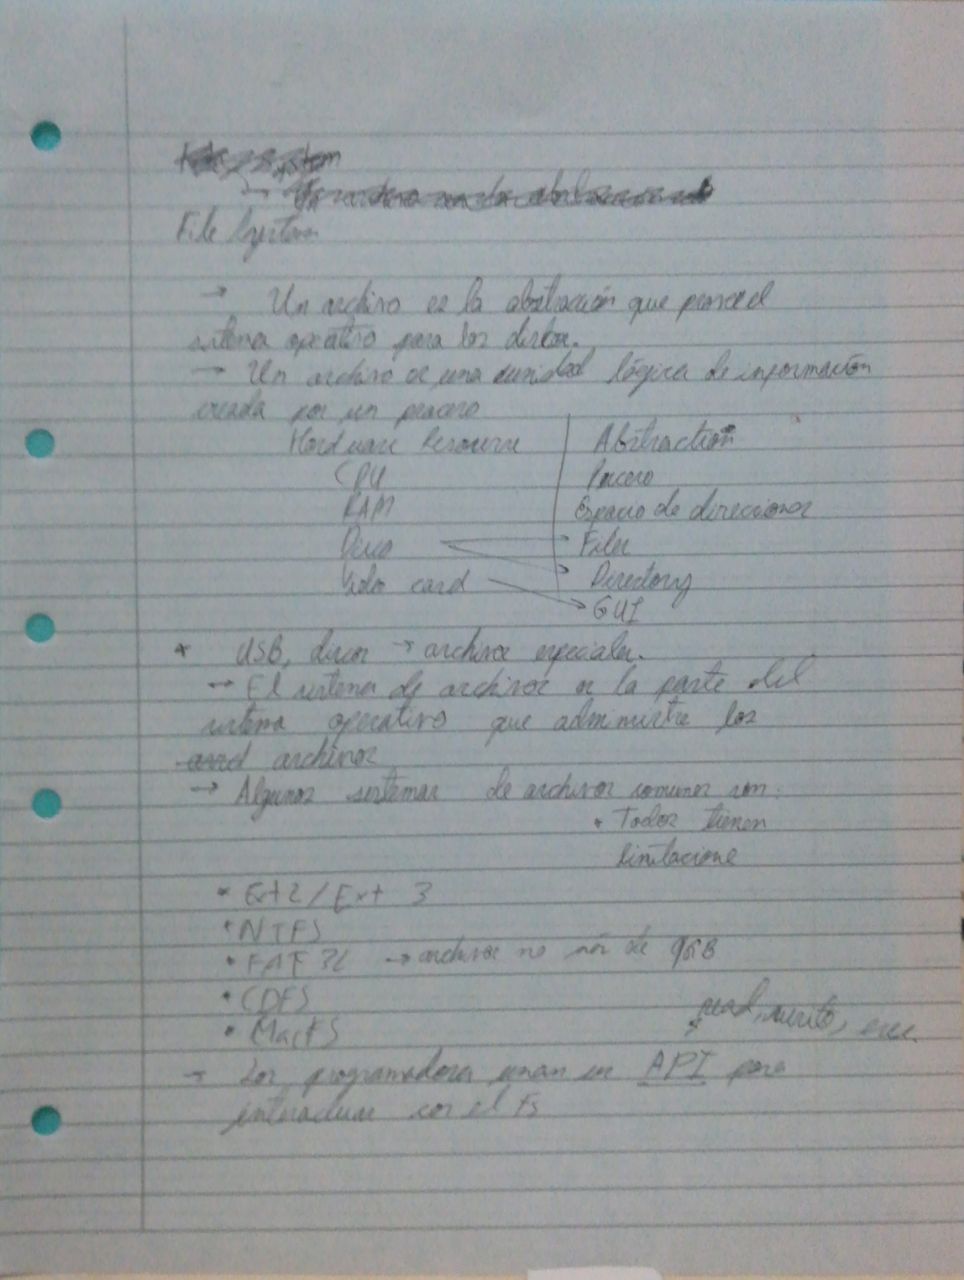 File System
→ Un archivo es la abstracción que provee el
sistema operativo para los discos.
→ Un archivo es una unidad lógica de información
creada por un proceso
Hardware Resource | Abstraction
CPU | Proceso
RAM | Espacio de direcciones
Disco → Files
→ Directory
Video card → GUI
* USB, discos → archivos especiales.
→ El sistema de archivos es la parte del
sistema operativo que administra los
archivos
→ Algunos sistemas de archivos comunes son:
* Todos tienen
limitacione
* Ext2 / Ext 3
* NTFS
* FAT 32 → archivos no más de
* CDFS
* MacFS
* read, write, exec.
→ Los programadores usan un API para
interactuar con el FS